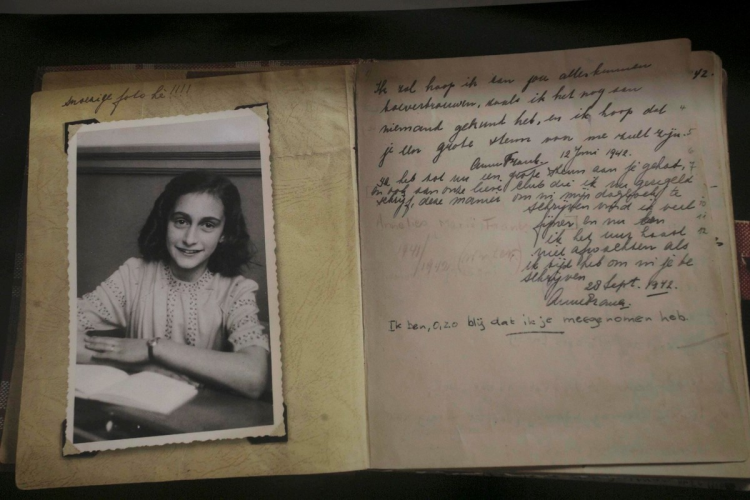 snoezige foto hè!!!!
Ik zal hoop ik aan jou alles kunnen
toevertrouwen, zoals ik het nog aan
niemand gekund heb, en ik hoop dat
je een grote steun van me zult zijn.
Anne Frank. 12 Juni 1942.
Ik heb tot nu een grote steun aan je gehad,
en ook aan onze lieve club die ik nu geregeld
schrijf, deze manier om in mijn dagboek te
schrijven vind ik veel
fijner en nu kan
ik het uur haast
niet afwachten als
ik tijd heb om in je te
schrijven
28 Sept. 1942.
Anne Frank.
Ik ben, O, zo blij dat ik je meegenomen heb